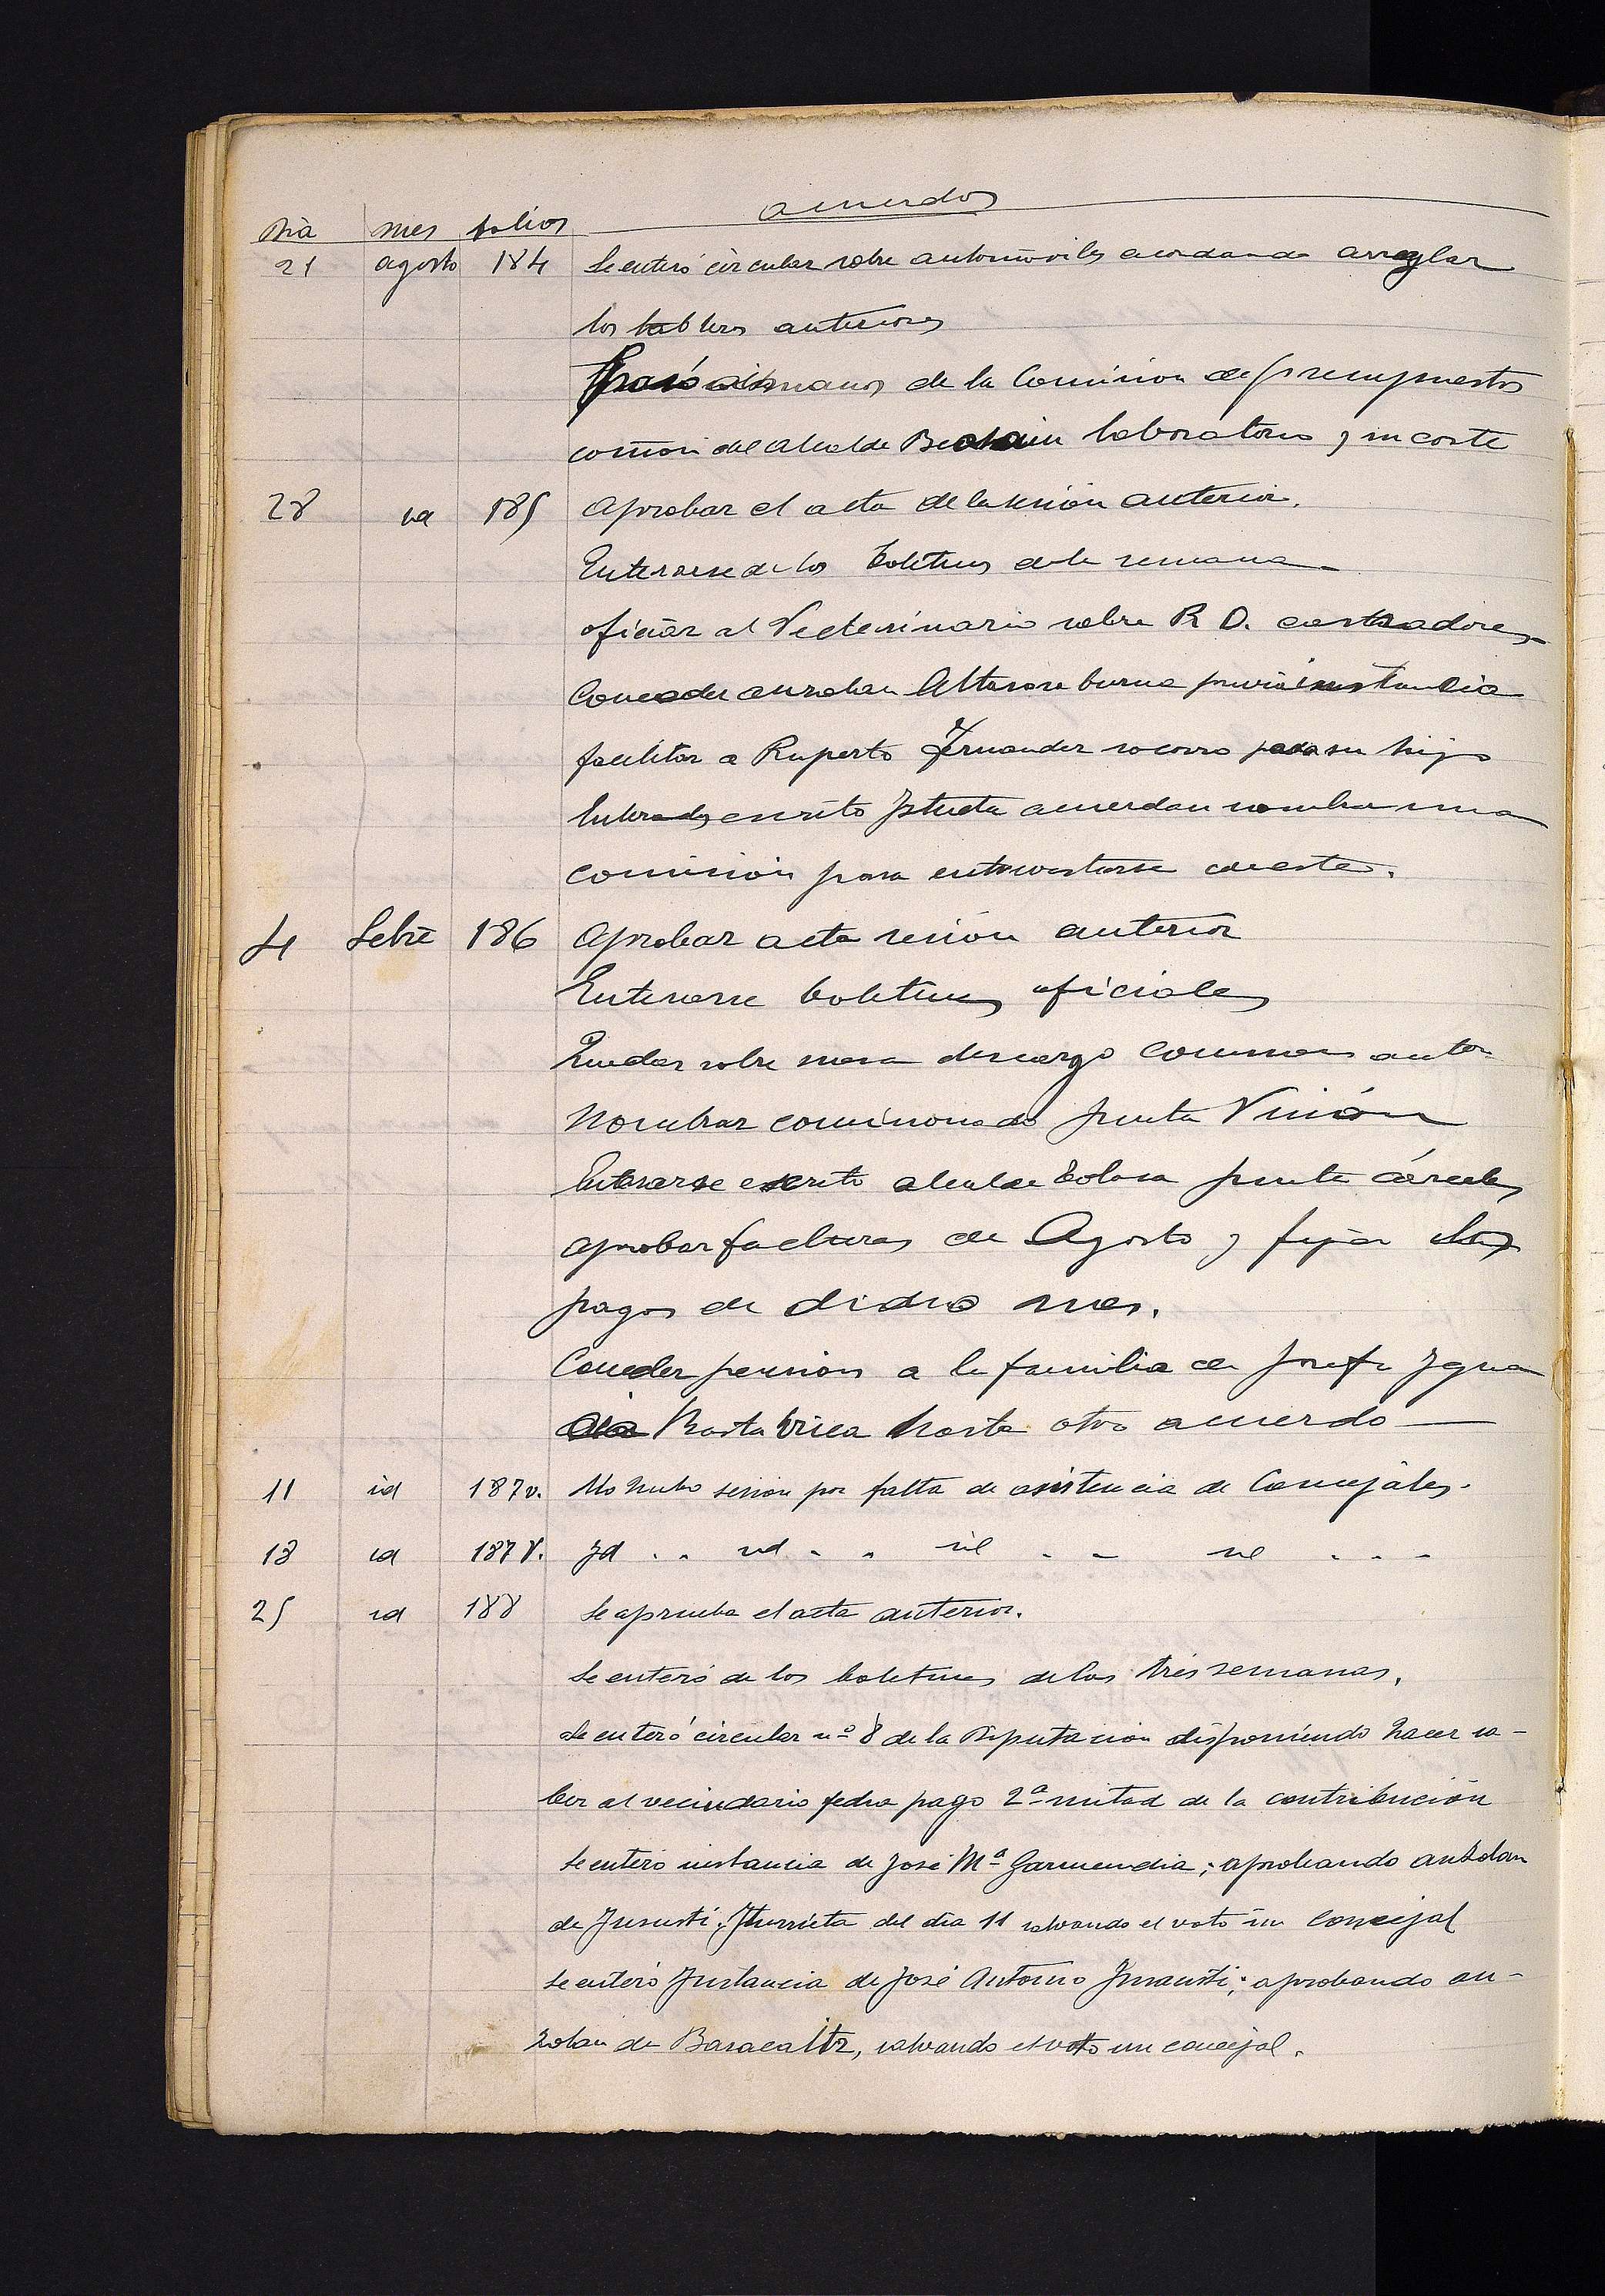 acuerdos
Dia mes folios
21 agosto 184 Se enteró circular sobre automóviles acordando arreglar
los tableros anteriores
Pasó a manos de la Comision de presupuestos
comon del alcalde Beasain laboratorio y su coste
28 id 185 Aprobar el acta de la sesión anterior.
Enterarse de los Boletines de la semana
oficiar al Vecterinario sobre R D. castradores
Conceder anzolan Altasore burua previa instancia
facilitar a Ruperto Fernandez socorro para su hijo
Enterados escrito Iztueta acuerdan nombrar una
comisión para entrevistarse con este.
4 Sebre 186 Aprobar acta sesion anterior
Enterarse boletines oficiales
Quedar sobre mesa descargo anter
Nombrar comisionado junta Unión
Enterarse escrito alcalde Tolosa junta cárceles
aprobar facturas de Agosto y fijar los
pagos de dicho mes.
Conceder pension a la familia de Josefa Ygna
cia hasta otro acuerdo
11 id 187v. No hubo sesion por falta de asistencia de Concejales.
18 id 187 V. Id . . id . . id . . id . . .
25 id 188 Se aprueba el acta anterior.
Se enteró de los boletines de las tres semanas.
Se enteró circular nº 8 de la Diputacion disponiendo hacer sa-
ber al vecindario fecha pago 2ª mitad de la contribución
Se enteró instancia de José Mª Garmendia; aprobando anzolan
de Insausti; Iturrieta del dia 11 salvando el voto un Concejal
Se enteró Instancia de José Antonio Insausti; aprobando an-
zolan de Basacaitz, salvando el voto un concejal.